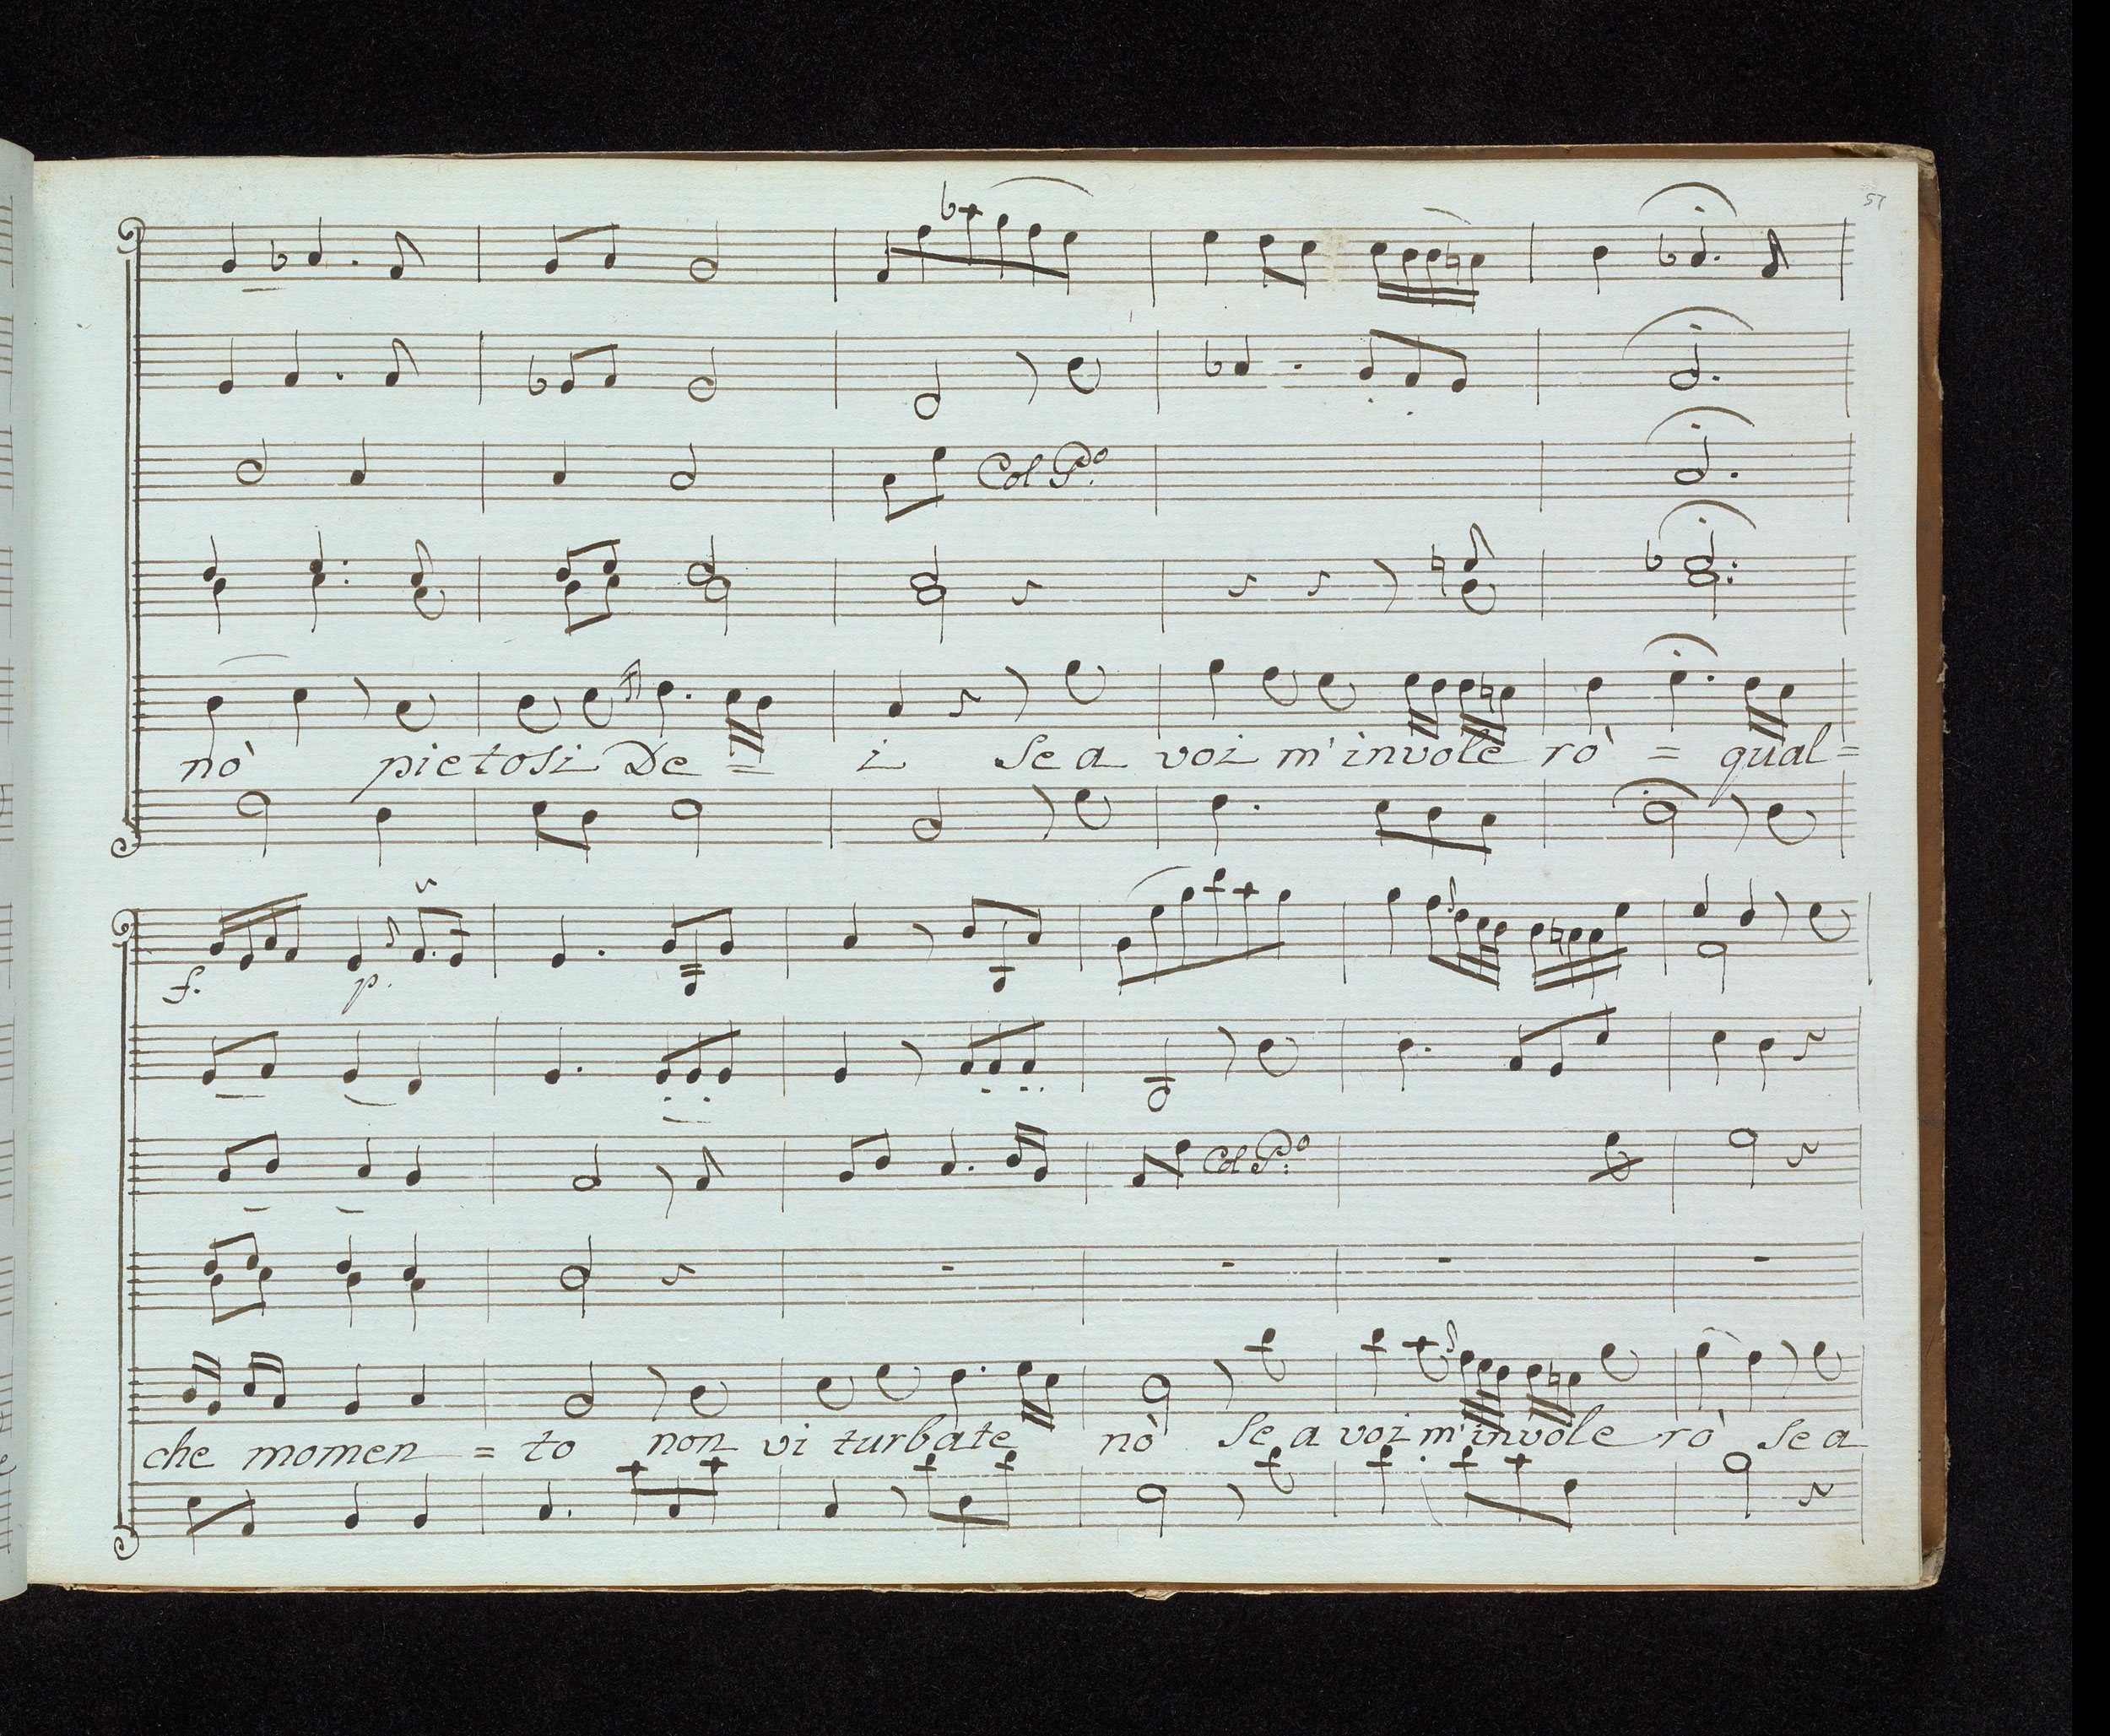 57
Col Pº.
nò pietosi De = i Se a voi m'involerò = qual=
f. p.
Col Pº.
che momen = to non vi turbate nò Se a voi m'involerò Se a